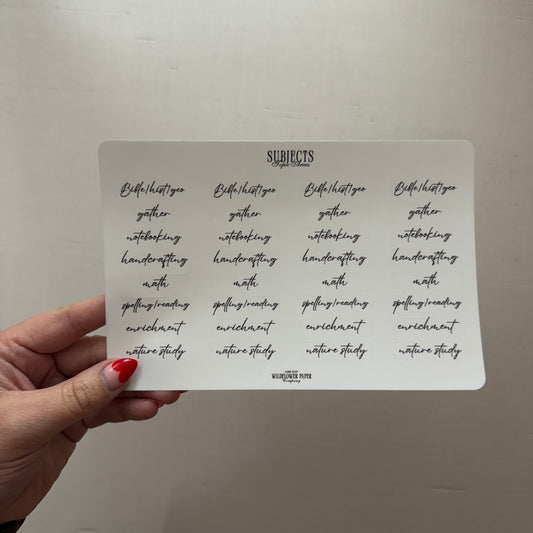 SUBJECTS
Topic Areas
Bible/hist/geo Bible/hist/geo Bible/hist/geo Bible/hist/geo
gather gather gather gather
notebooking notebooking notebooking notebooking
handcrafting handcrafting handcrafting handcrafting
math math math math
spelling/reading spelling/reading spelling/reading spelling/reading
enrichment enrichment enrichment enrichment
nature study nature study nature study nature study
WILDFLOWER PAPER
Company